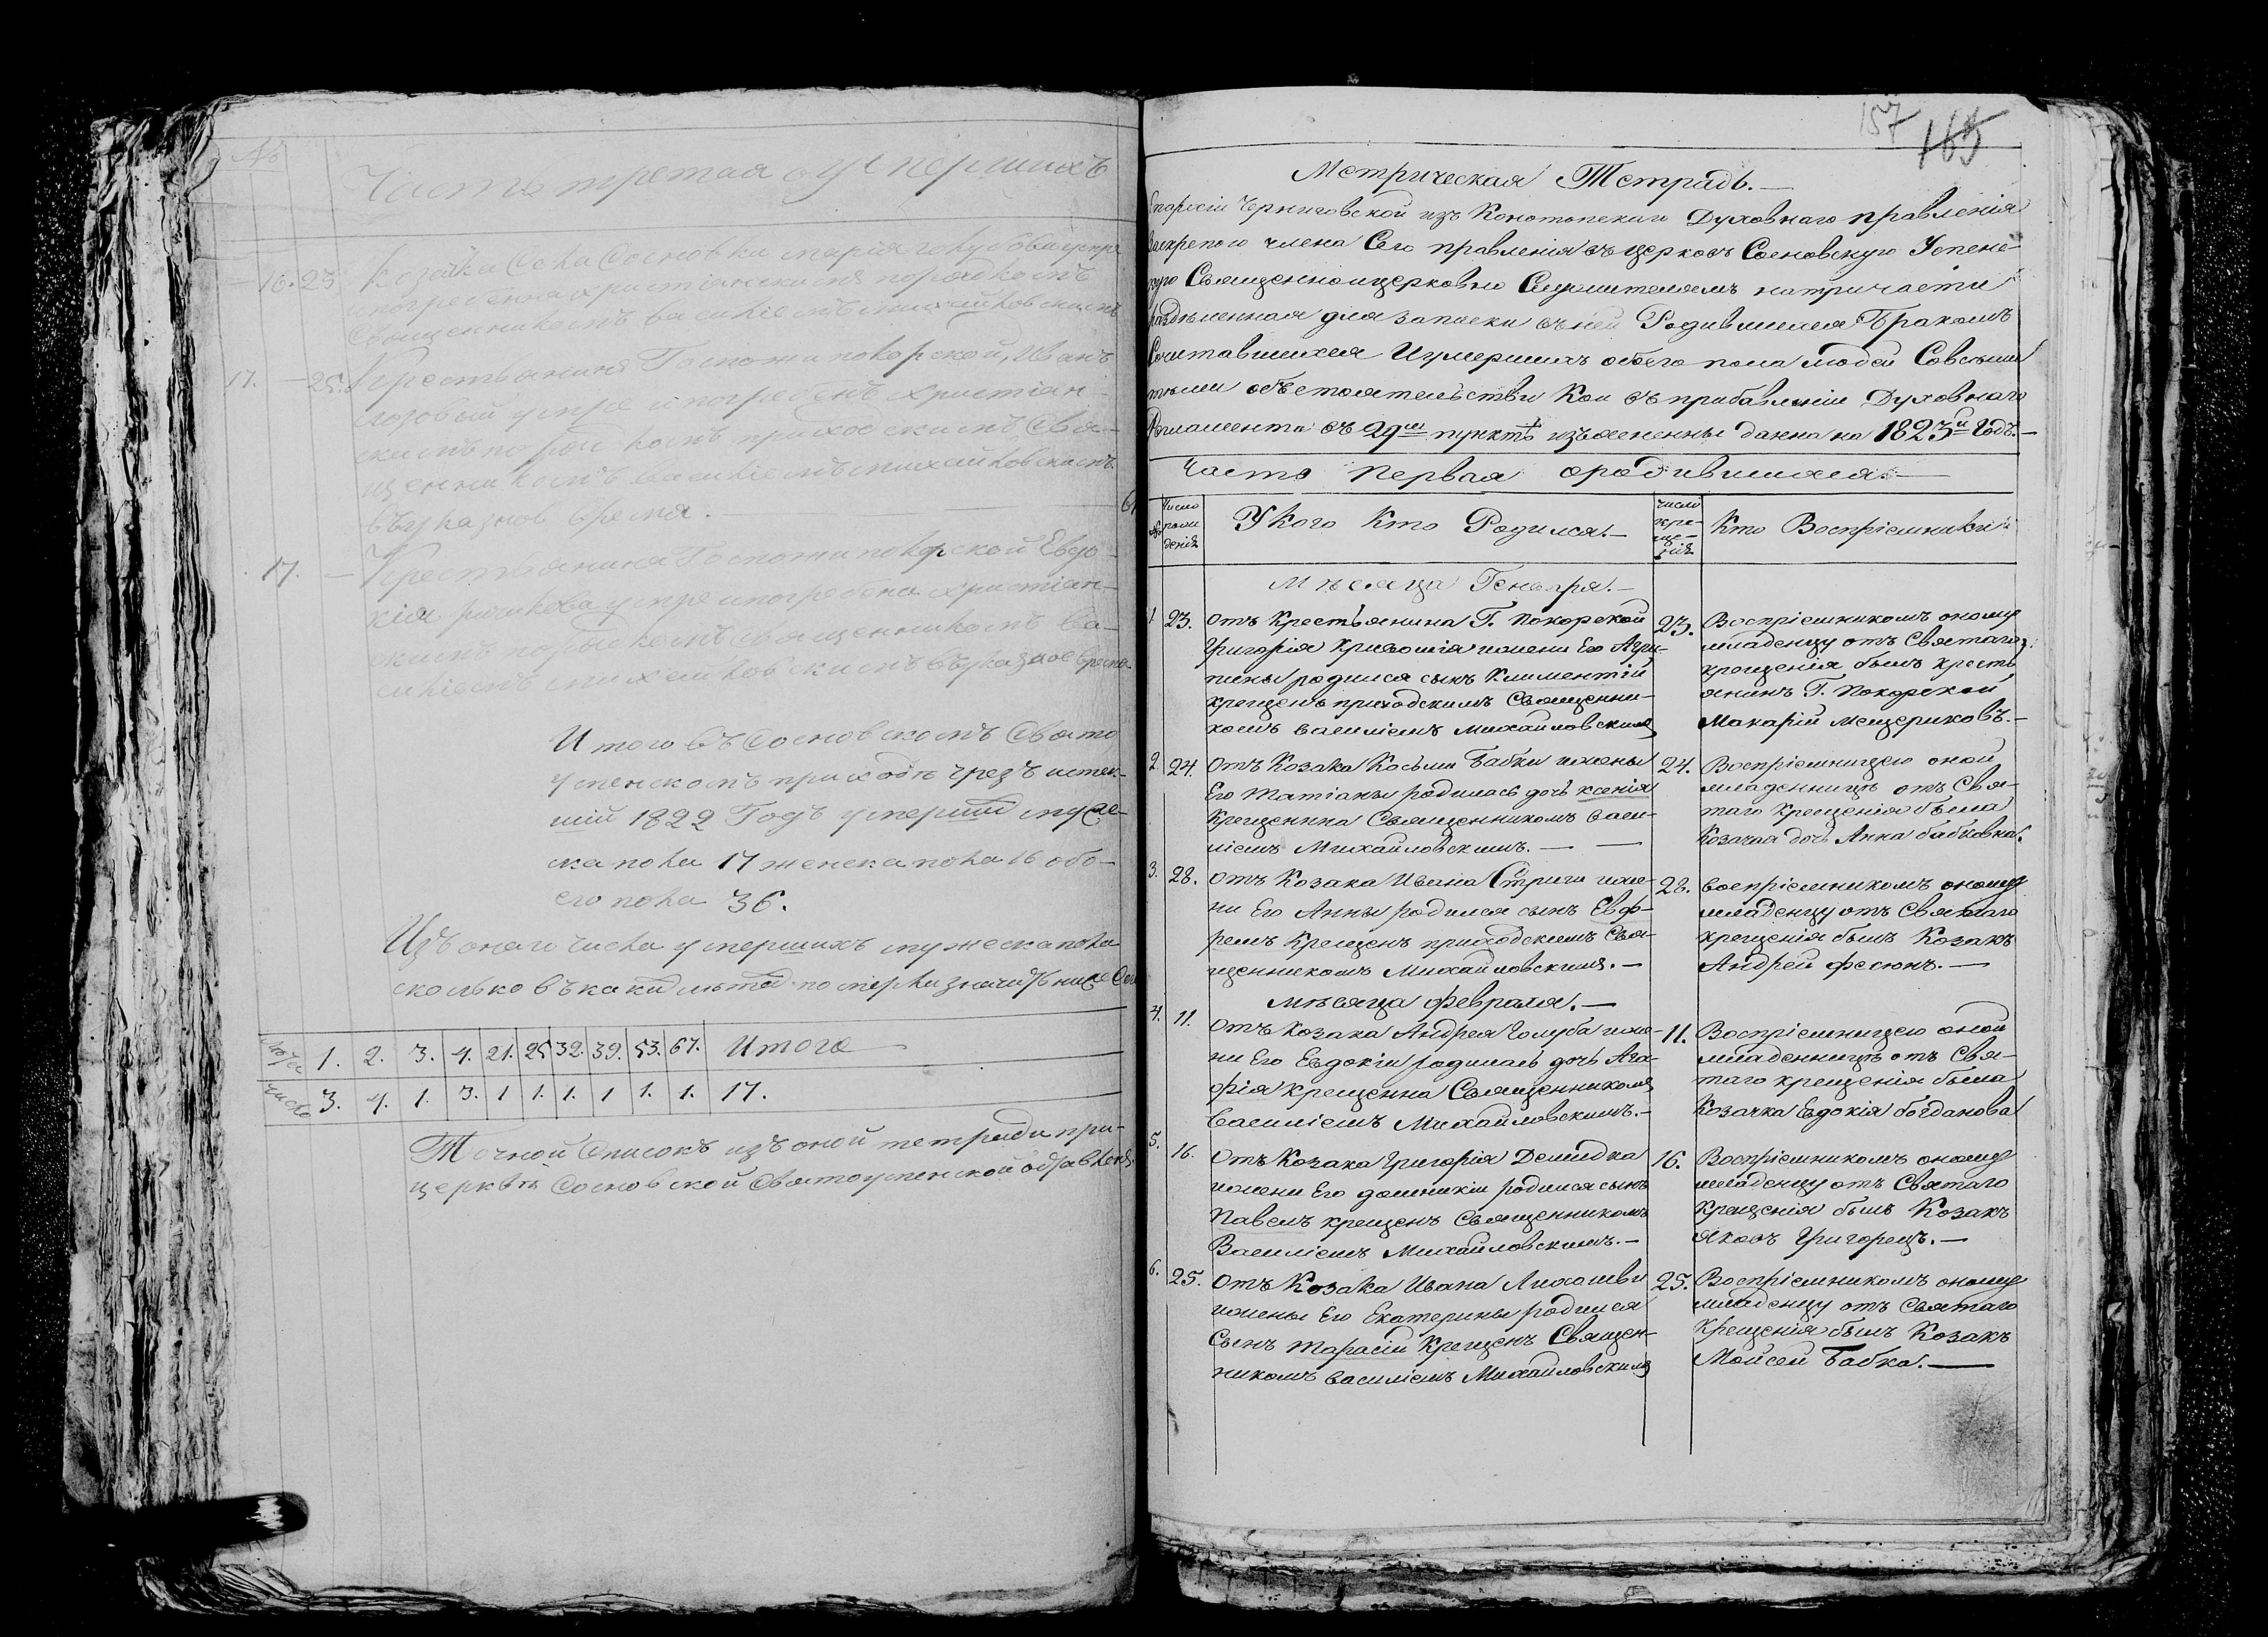 №
Часть третая о умершихъ
16. 23
Козачка Села Сосновки марія умре
и погребенна христіанскимъ порядкомъ
Священникомъ василіемъ михайловскимъ
17. 25.
Крестьянинъ Госпожи покорской, Иванъ
умре и погребенъ христіан-
скимъ порядкомъ приходскимъ Свя-
щенникомъ василіемъ михайловскимъ
въ указное время.
17.
Крестьянина Госпожи покорской Евдо-
кія умре и погребена христіан-
скимъ порядкомъ священникомъ ва-
силіемъ михайловскимъ въ указное время
Итого въ Сосновскомъ Свято
успенскомъ приходѣ чрезъ истек-
шій 1822 Годъ умерши муже-
ска пола 17 женска пола 16 обо-
его пола 36.
Изъ онаго числа умершихъ мужеска пола
сколько въ каки лѣта померли значитъ ниже
Лѣта 1. 2. 3. 4. 21. 25 32. 39. 53. 67. Итого
Число 3. 4. 1. 3. 1 1. 1. 1 1. 1. 17.
Точной Списокъ изъ оной тетради при
церквѣ Сосновской Святоуспенской
157 165
Метрическая Тетрадь.—
Епархіи Черниговской изъ Конотопскаго Духовнаго правленія
члена Сего правленія въ церковь Сосновскую Успенс-
кую Священноцерковно Служителямъ натричасти
раздѣленная для записки въ ней Родившихся Бракомъ
Сочитавшихся И умершихъ обоего пола людей Совсѣми
тѣми объстоятельствы Кои въ прибавленіи Духовнаго
Регламента въ 29мъ пунктѣ изъясненны данна на 1823й Годъ.—
Часть первая о родившихся.—
№
Число рожденія
У Кого Кто Родился.—
Число крещенія
Кто Воспріемники
Мѣсяца Генваря.—
1 23.
Отъ Крестьянина Г. Покорской
Григорія Кривошія жены Его Агри-
пины родился сынъ Климентій
крещенъ приходскимъ Священни-
комъ василіемъ михайловскимъ
23.
Воспріемникомъ оному
младенцу отъ Святаго
крещенія былъ кресть
янинъ Г. Покорской
Макарій Мещериковъ.—
2. 24.
Отъ Козака Косьми Бабки жены
Его Татіаны родилась дочь ксенія
Крещенна Священникомъ васи-
ліемъ Михайловскимъ. — —
24.
Воспріемницею оной
младенницѣ отъ Свя-
таго Крещенія была
Козачая дочь Анна бабковна.
3. 28.
Отъ Козака Ивана Стриги же-
ни Его Анны родился сынъ Евф-
ремъ Крещенъ приходскимъ Свя-
щенникомъ Михайловскимъ.—
28.
воспріемникомъ оному
младенцу отъ Святаго
крещенія былъ Козакъ
Андрей фесюнъ.—
Мѣсяца февраля.—
4. 11.
Отъ Козака Андрея Голуба же-
ни Его Евдокіи родилась дочь Ага-
фія крещенна Священникомъ
Василіемъ Михайловскимъ.—
11.
Воспріемницею оной
младенницѣ отъ Свя-
таго крещенія была
Козачка Евдокія богданова
5. 16.
Отъ Козака Григорія Демидка
жени Его домникіи родился сынъ
Павелъ крещенъ Священникомъ
Василіемъ Михайловскимъ.—
16.
Воспріемникомъ оному
младенцу отъ Святаго
Крещенія былъ Козакъ
Яковъ Григорецъ.—
6. 25.
Отъ Козака Ивана Лихошви
жены Его Екатерины родился
Сынъ тарасій Крещенъ Священ-
никомъ василіемъ Михайловскимъ
25.
Воспріемникомъ оному
младенцу отъ Святаго
Крещенія былъ Козакъ
Мойсей Бабка.—